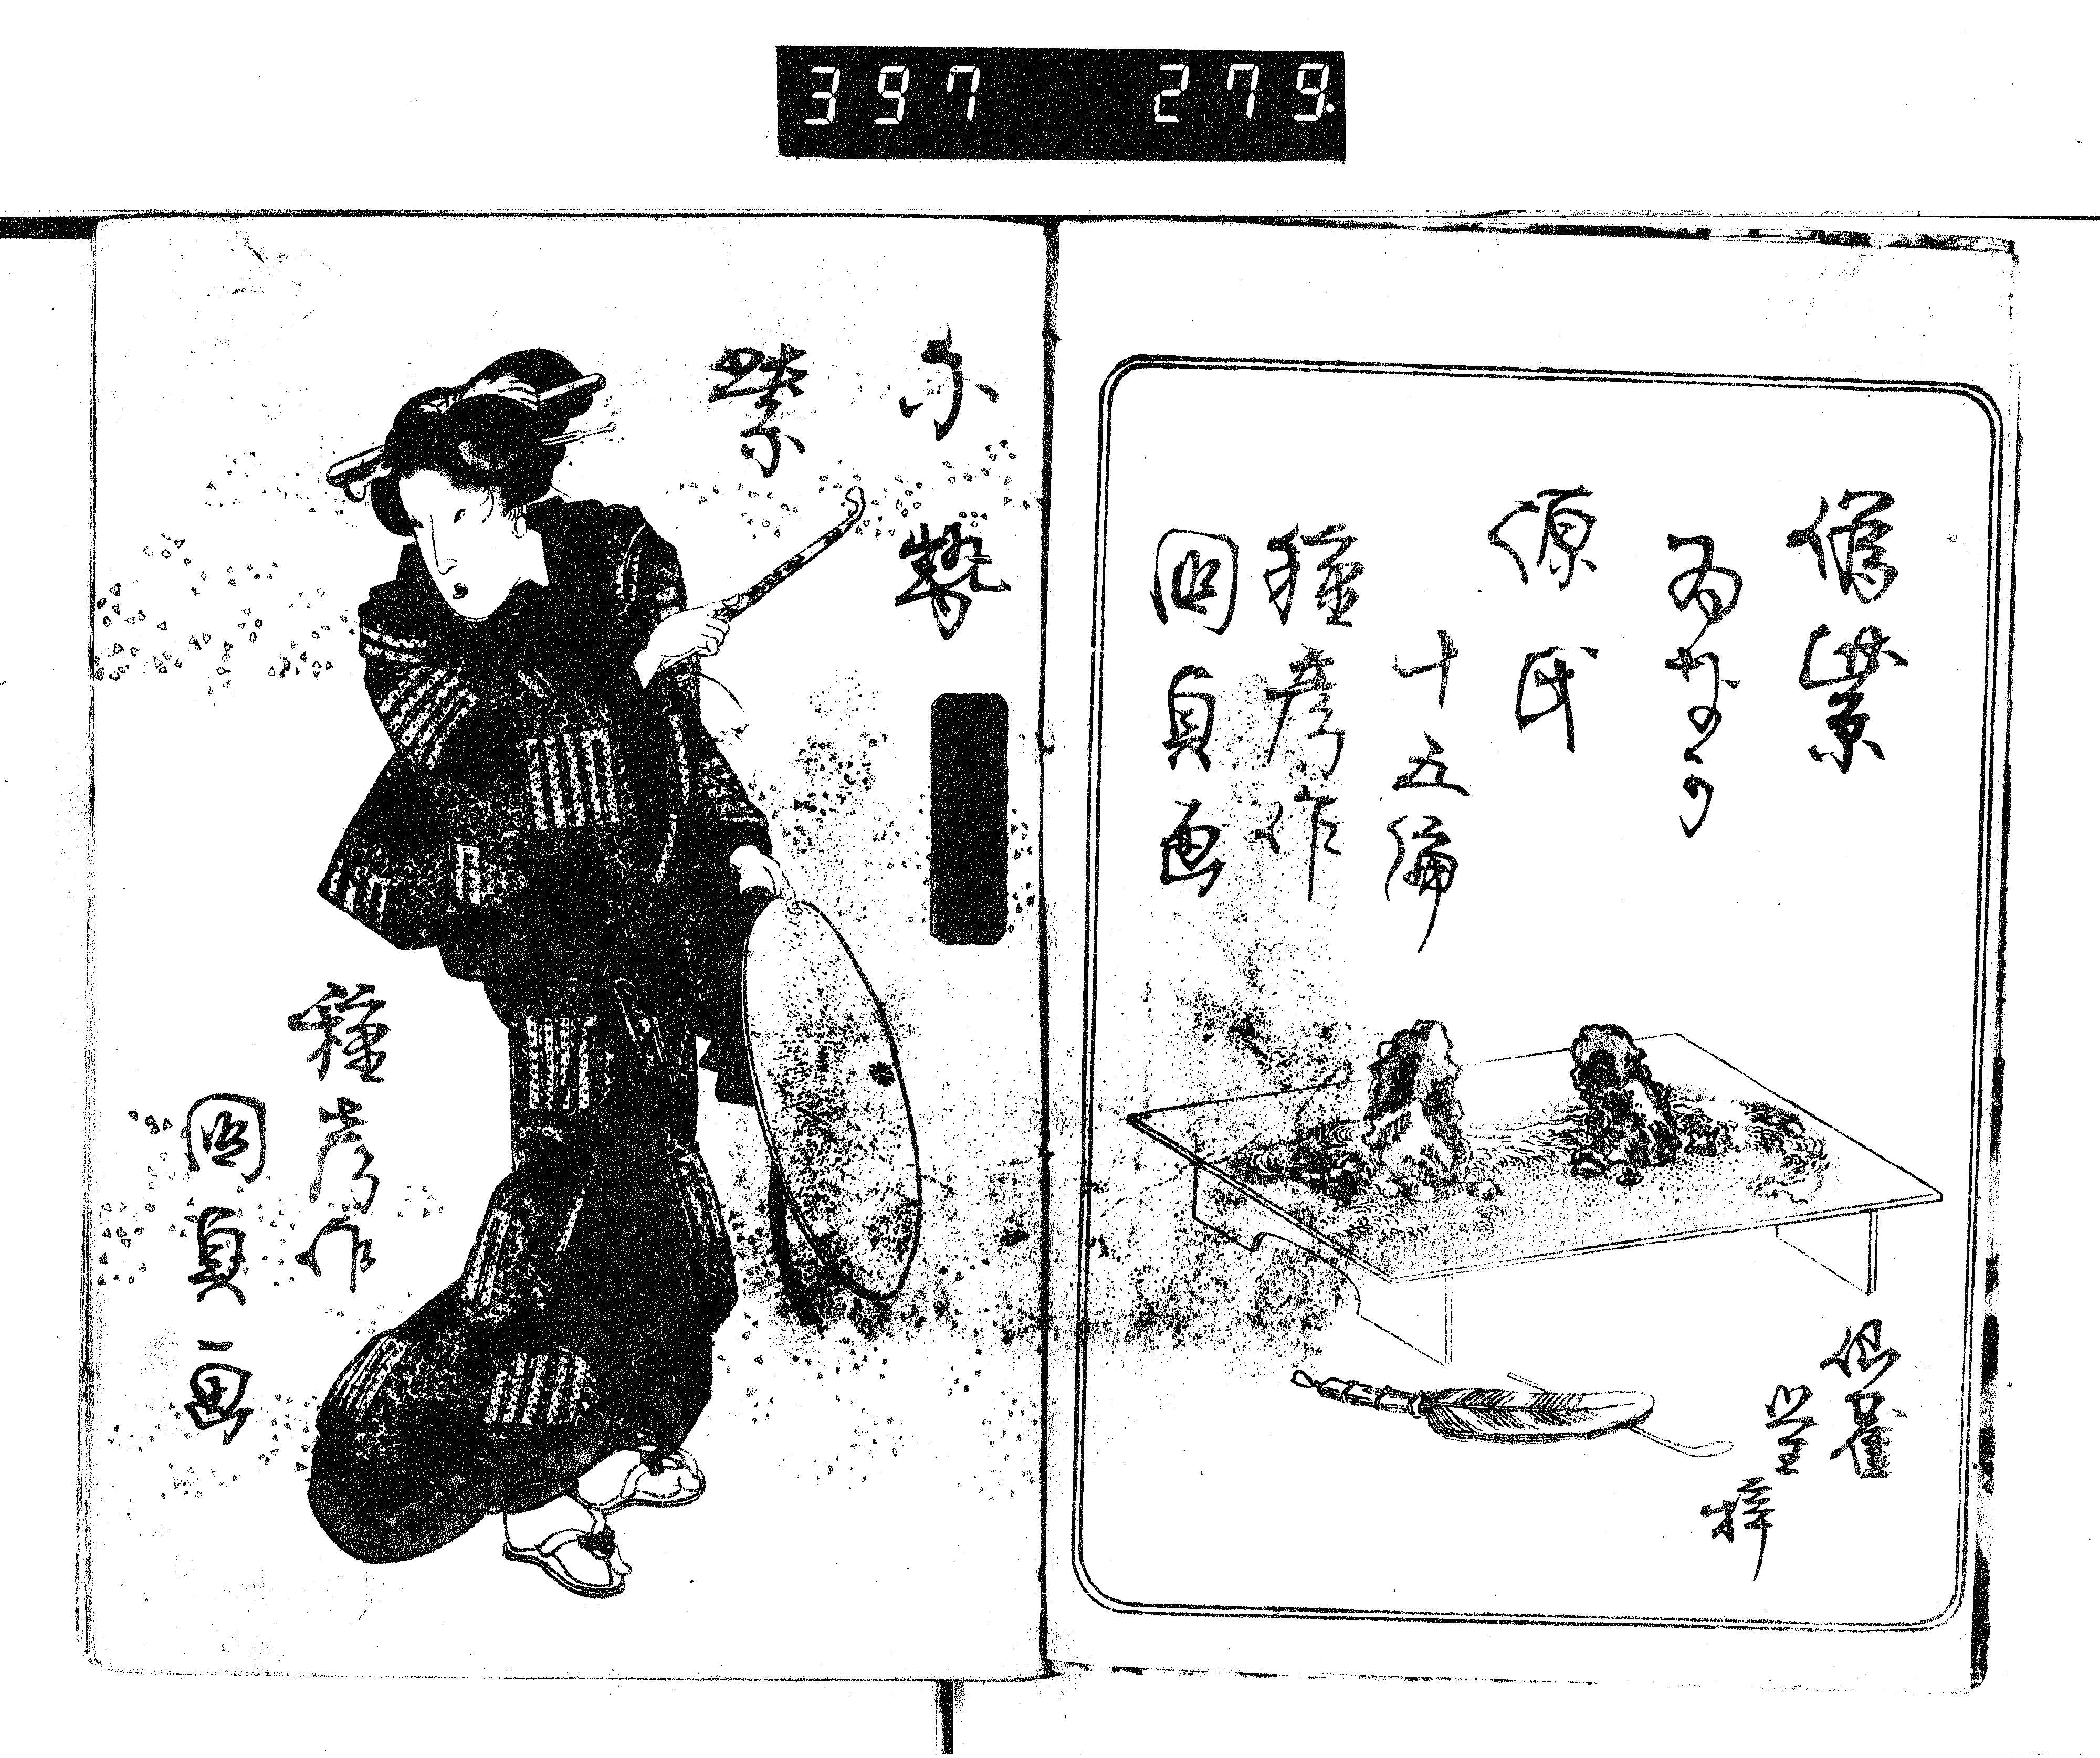 397 279.
偐紫
為なか
源氏
十五編
種彦作
國貞画
仙鶴
堂
梓
尓勢
紫
種彦作
國貞画